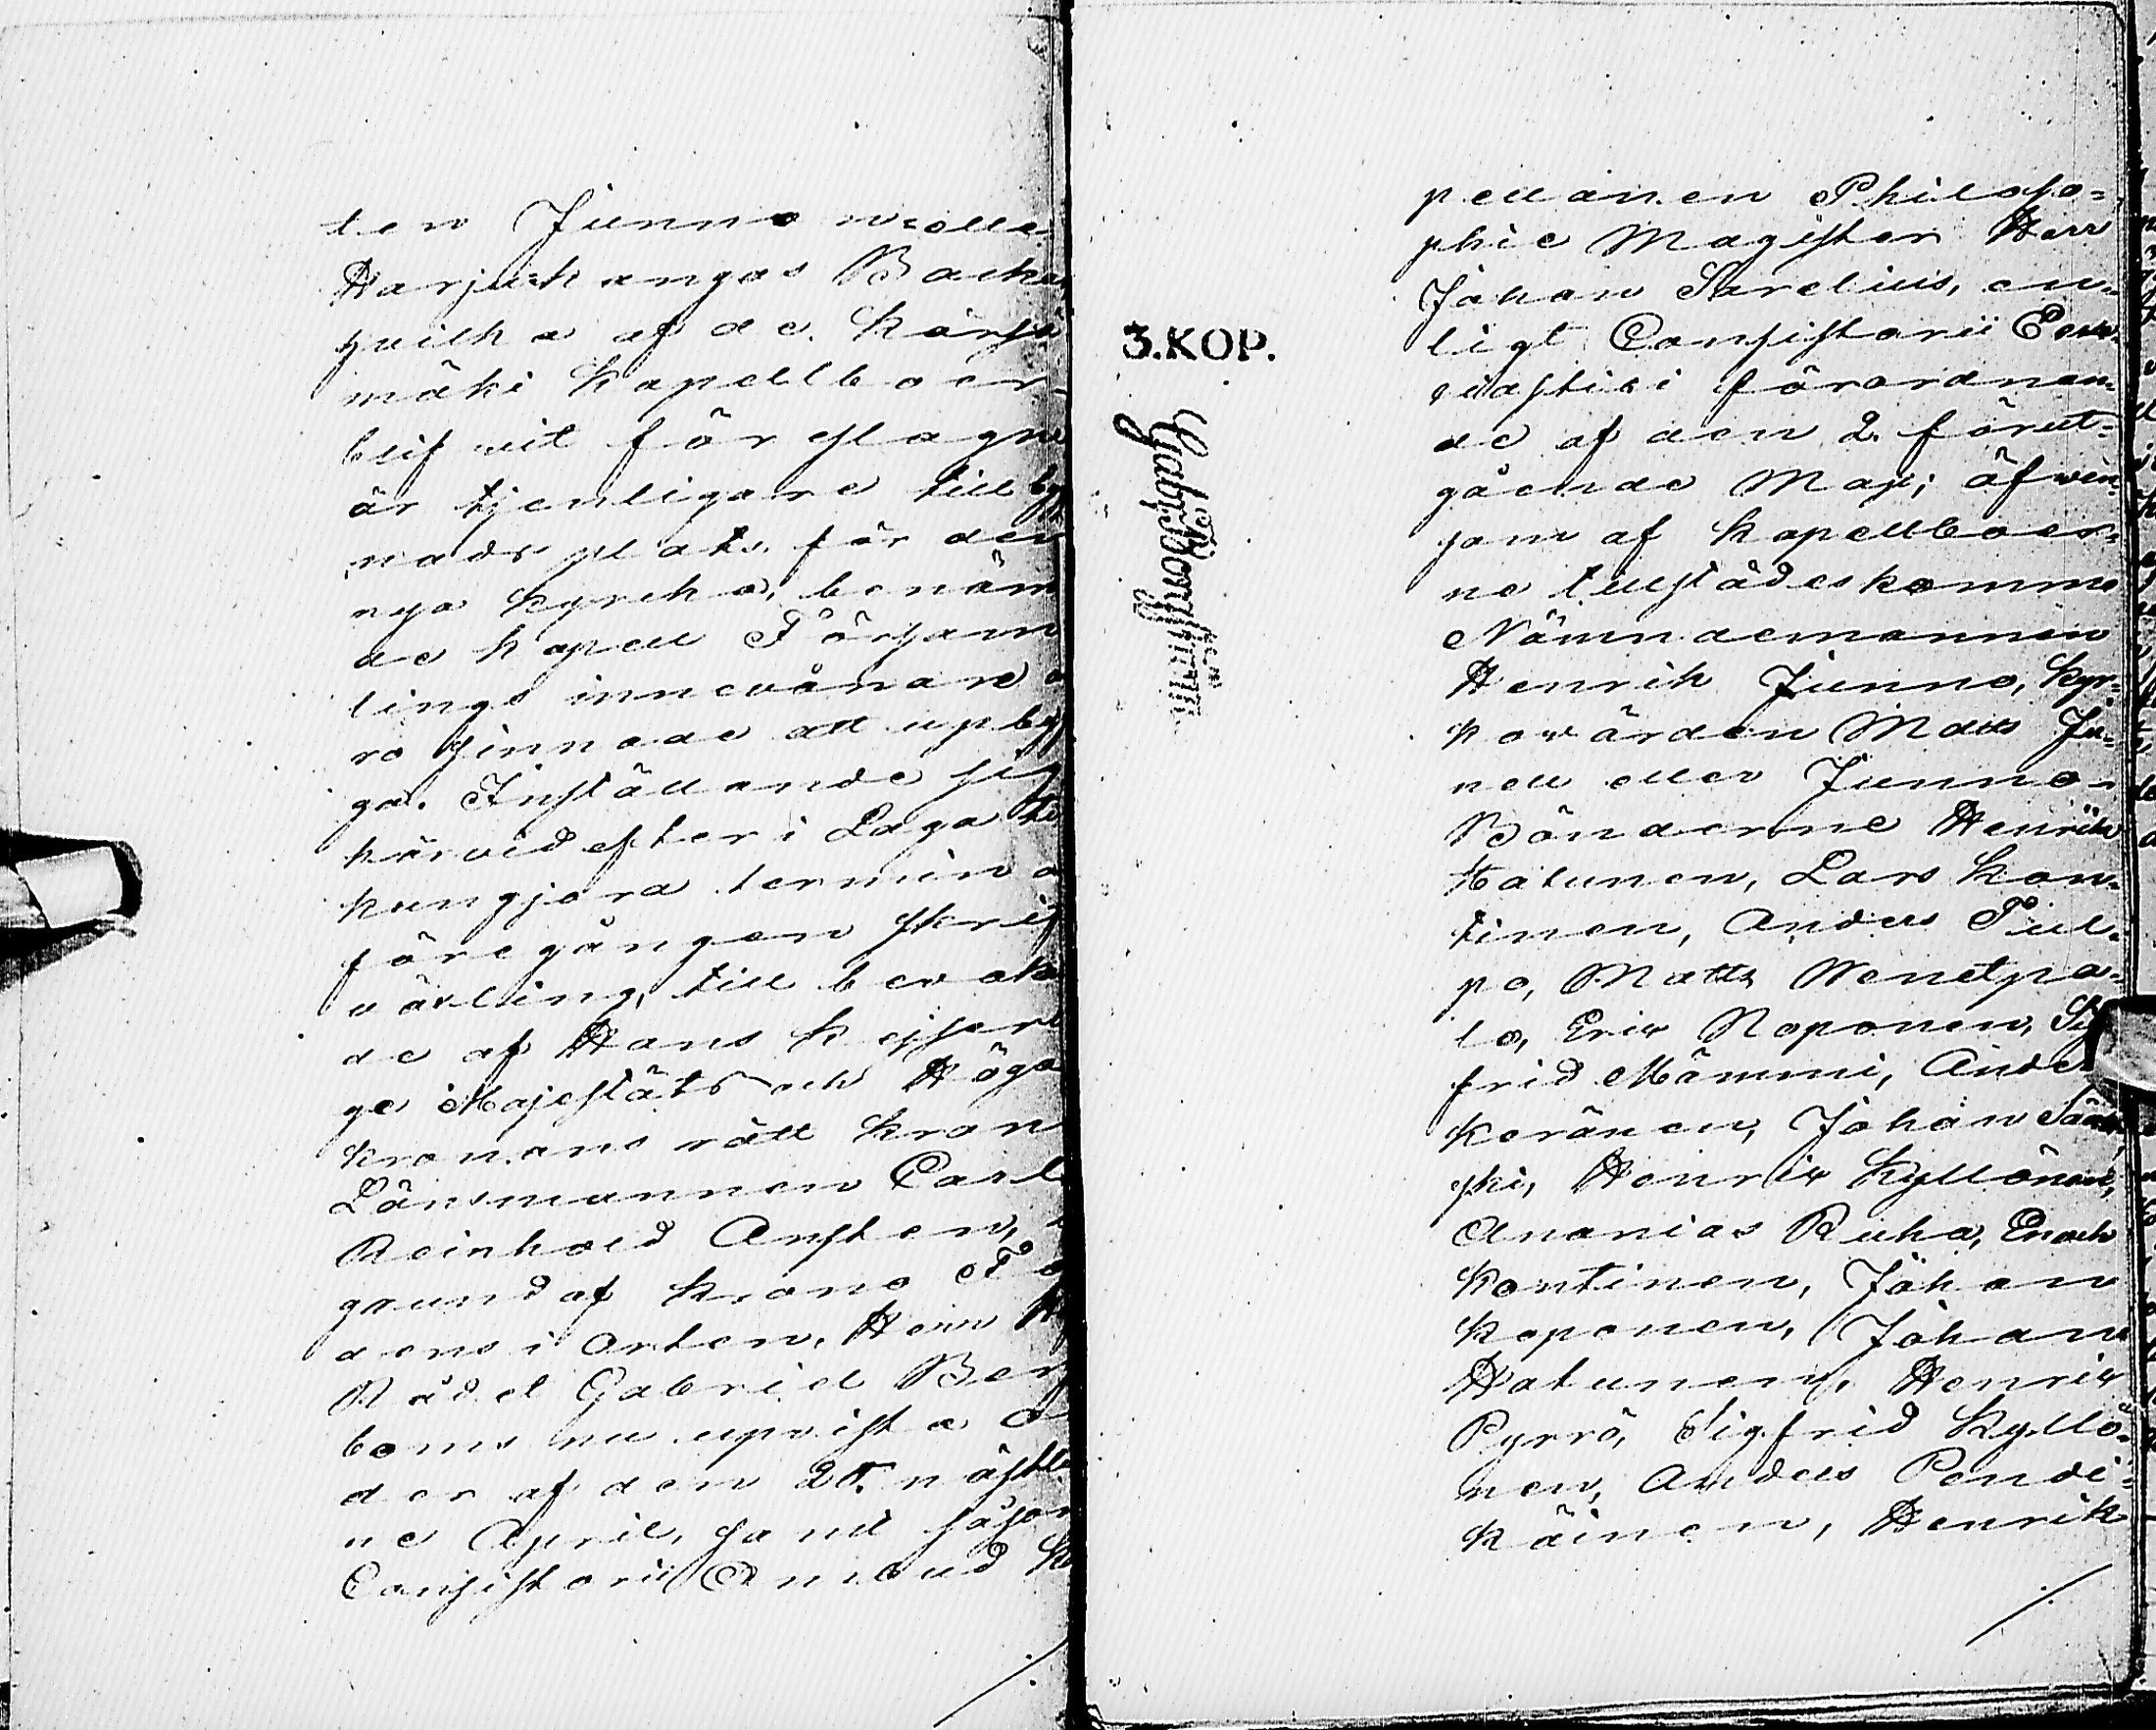 ten Junno eller
Harjukangas Backe,
hvilka af de Kärsä
mäki Kapellboer
blifvit föreslagne
är tjenligare till byg
nads plats för den
nya kyrcka, benäm
de Kapell Församm
lings innevånare
ro sinnade att upbyg
ga. Inställande sig
härvid efter i Laga ti
kungjord termin o
föregången skrif
växling, till bevaka
de af Hans Kejserli
ge Majestäts och Höga
Kronans rätt Krono
Länsmannen Carl
Reinhold Ansten,
grund af Krono Fo
dens i Orten, Herr
Rådet Gabriel Ber
boms nu upviste Or
der af den 25. nästled
ne April, så ock såsom
Consistorii Ombud Ka
3.KOP.
pellanen Philoso-
phie Magister Herr
Johan Sarelius, en-
ligt Consistorii Eccle-
siastici förordnan-
de af den 2. förut-
gående Maji; äfven-
som af Kapellboer-
ne tillstädeskomme
Nämndemannen
Henrik Junno, Kyr-
kovärden Matts Ju-
nell eller Junno-
Bönderne Henrik
Hatunen, Lars Kon-
tinen, Anders Tul-
po, Matts Venetpa-
lo, Eric Roponen, Sig
frid Mämmi, Anders
Keränen, Johan Sää
ski, Henric Kyllönen,
Ananias Ruha, Enoch
Kontinen, Johan
Koponen, Johan
Hatunen, Henric
Pyrrö, Sigfrid Kyllö-
nen, Anders Pendi-
käinen, Henrik